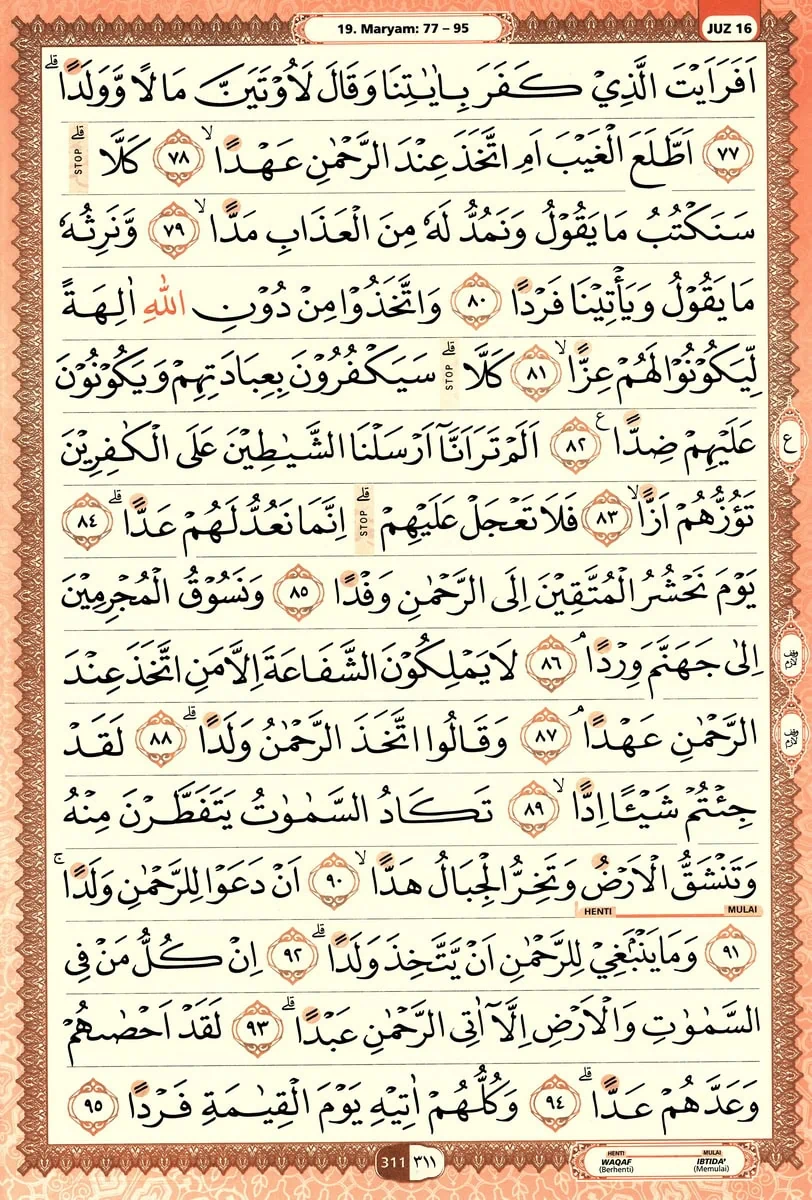 19. Maryam: 77 – 95
JUZ 16
اَفَرَاَيْتَ الَّذِيْ كَفَرَ بِاٰيٰتِنَا وَقَالَ لَاُوْتَيَنَّ مَالًا وَّوَلَدًاۗ
٧٧ اَطَّلَعَ الْغَيْبَ اَمِ اتَّخَذَ عِنْدَ الرَّحْمٰنِ عَهْدًاۙ ٧٨ كَلَّاۗ STOP
سَنَكْتُبُ مَا يَقُوْلُ وَنَمُدُّ لَهٗ مِنَ الْعَذَابِ مَدًّاۙ ٧٩ وَّنَرِثُهٗ
مَا يَقُوْلُ وَيَأْتِيْنَا فَرْدًا ٨٠ وَاتَّخَذُوْا مِنْ دُوْنِ اللّٰهِ اٰلِهَةً
لِّيَكُوْنُوْا لَهُمْ عِزًّاۙ ٨١ كَلَّاۗ STOP سَيَكْفُرُوْنَ بِعِبَادَتِهِمْ وَيَكُوْنُوْنَ
عَلَيْهِمْ ضِدًّا ࣖ ٨٢ اَلَمْ تَرَ اَنَّآ اَرْسَلْنَا الشَّيٰطِيْنَ عَلَى الْكٰفِرِيْنَ
ع
تَؤُزُّهُمْ اَزًّاۙ ٨٣ فَلَا تَعْجَلْ عَلَيْهِمْۗ STOP اِنَّمَا نَعُدُّ لَهُمْ عَدًّاۗ ٨٤
يَوْمَ نَحْشُرُ الْمُتَّقِيْنَ اِلَى الرَّحْمٰنِ وَفْدًا ٨٥ وَنَسُوْقُ الْمُجْرِمِيْنَ
اِلٰى جَهَنَّمَ وِرْدًاۘ ٨٦ لَا يَمْلِكُوْنَ الشَّفَاعَةَ اِلَّا مَنِ اتَّخَذَ عِنْدَ
وقف لازم
الرَّحْمٰنِ عَهْدًاۘ ٨٧ وَقَالُوا اتَّخَذَ الرَّحْمٰنُ وَلَدًاۗ ٨٨ لَقَدْ
وقف لازم
جِئْتُمْ شَيْـًٔا اِدًّاۙ ٨٩ تَكَادُ السَّمٰوٰتُ يَتَفَطَّرْنَ مِنْهُ
وَتَنْشَقُّ الْاَرْضُ وَتَخِرُّ الْجِبَالُ هَدًّاۙ ٩٠ اَنْ دَعَوْا لِلرَّحْمٰنِ وَلَدًاۚ
HENTI MULAI
٩١ وَمَا يَنْۢبَغِيْ لِلرَّحْمٰنِ اَنْ يَّتَّخِذَ وَلَدًاۗ ٩٢ اِنْ كُلُّ مَنْ فِى
السَّمٰوٰتِ وَالْاَرْضِ اِلَّآ اٰتِى الرَّحْمٰنِ عَبْدًاۗ ٩٣ لَقَدْ اَحْصٰىهُمْ
وَعَدَّهُمْ عَدًّاۗ ٩٤ وَكُلُّهُمْ اٰتِيْهِ يَوْمَ الْقِيٰمَةِ فَرْدًا ٩٥
311 ٣١١
HENTI MULAI
WAQAF IBTIDA'
(Berhenti) (Memulai)